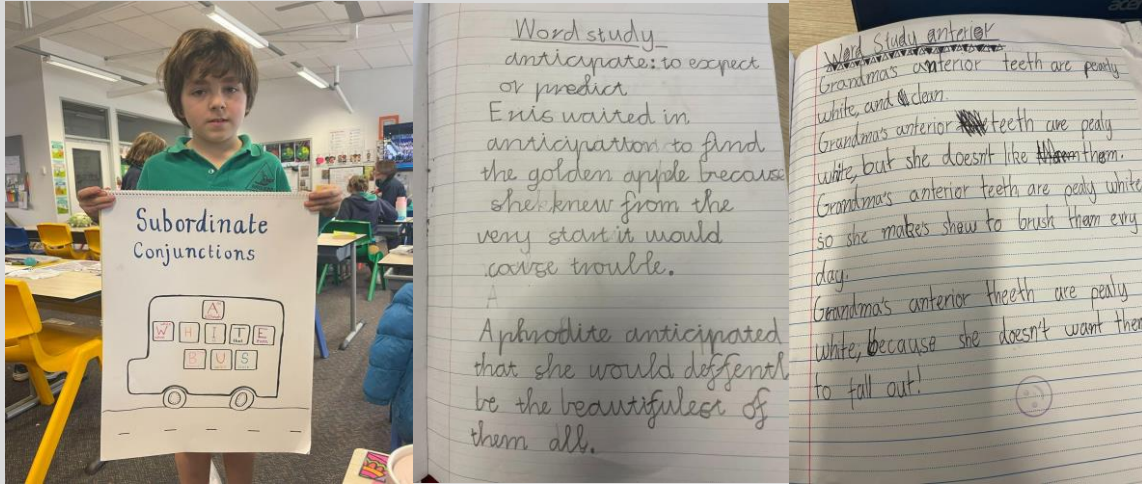 Subordinate
Conjunctions
A
W H I T E
B U S
Word study
anticipate: to expect
or predict
Eris waited in
anticipation to find
the golden apple because
she knew from the
very start it would
cause trouble.
A
Aphrodite anticipated
that she would deffentl
be the beautifulest of
them all.
acer
Word Study anterior
Grandma's anterior teeth are pearly
white, and clean.
Grandma's anterior teeth are pealy
white, but she doesn't like them.
Grandma's anterior teeth are pealy white
so she makes shew to brush them evry
day.
Grandma's anterior theeth are pealy
white, because she doesn't want them
to fall out!